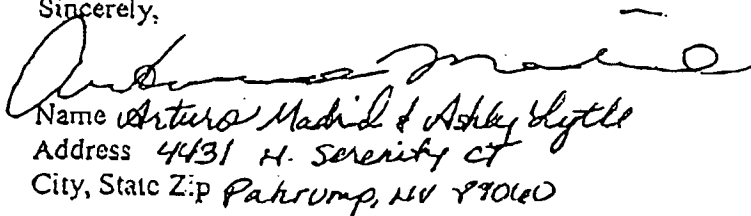 Sincerely,
Name Arturo Madrid & Ashley Lytle
Address 4431 N. Serenity CT
City, State Zip Pahrump, NV 89060